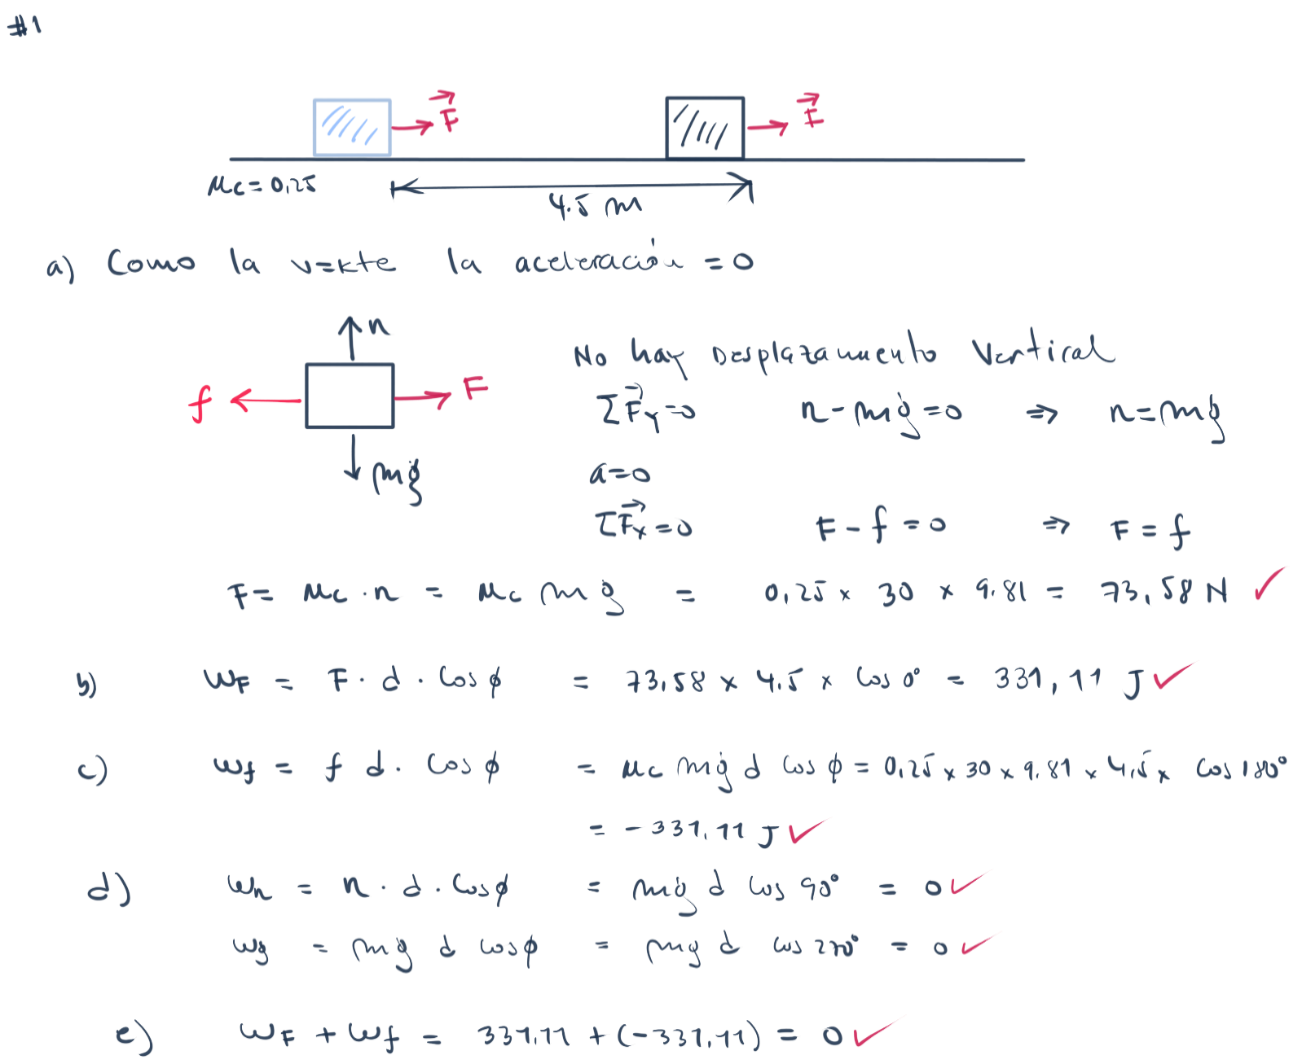 #1
F F
Mc = 0,25
4.5 m
a) Como la v=kte la aceleración = 0
n
f F
mg
No hay Desplazamiento Vertical
ΣFy=0 n - mg = 0 ⇒ n = mg
a=0
ΣFx=0 F - f = 0 ⇒ F = f
F = Mc . n = Mc m g = 0,25 x 30 x 9.81 = 73,58 N ✓
b) WF = F · d . Cos ϕ = 73,58 x 4.5 x Cos 0° = 331,11 J ✓
c) Wf = f d. Cos ϕ = Mc mg d Cos ϕ = 0,25 x 30 x 9,81 x 4,5 x Cos 180°
= - 331,11 J ✓
d) Wn = n · d . Cosϕ = mg d Cos 90° = 0 ✓
Wg = mg d cosϕ = mg d cos 270° = 0 ✓
e) WF + Wf = 331,11 + (-331,11) = 0 ✓